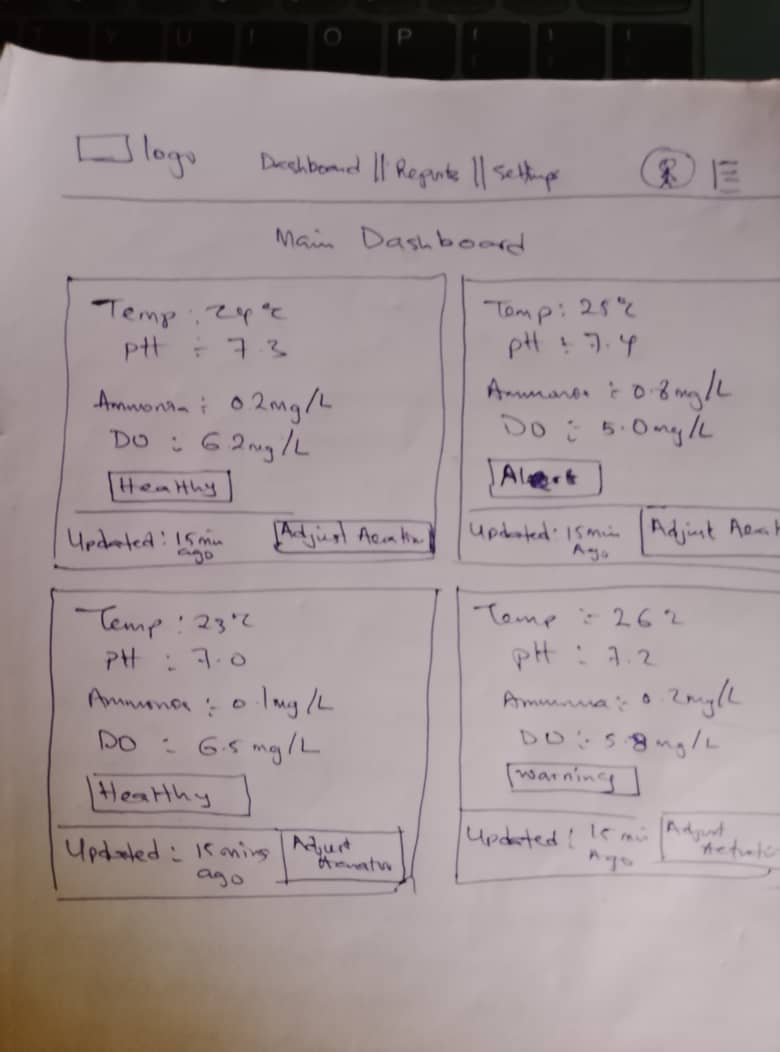 T Y U I O P
logo Dashboard || Reports || Settings
Main Dashboard
Temp : 24°C
pH : 7.3
Ammonia : 0.2mg/L
DO : 6.2mg/L
Healthy
Updated : 15min ago
Adjust Aeration
Temp : 25°C
pH : 7.4
Ammonia : 0.8mg/L
DO : 5.0mg/L
Alert
Updated : 15min Ago
Adjust
Temp : 23°C
pH : 7.0
Ammonia : 0.1mg/L
DO : 6.5mg/L
Healthy
Updated : 15mins ago
Adjust
Temp : 26
pH : 7.2
Ammonia : 0.2mg/L
DO : 5.8mg/L
Warning
Updated : 15 min Ago
Adjust